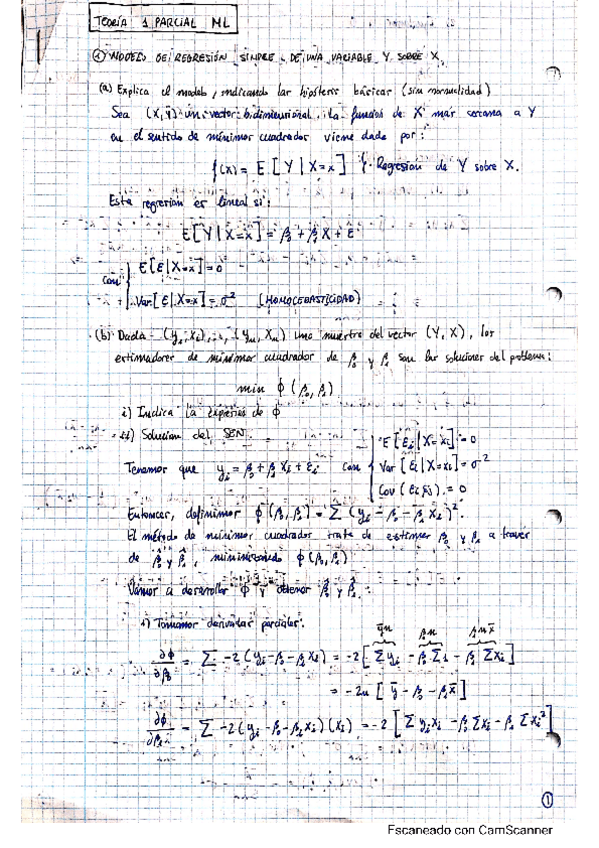 TEORÍA 1 PARCIAL ML
① MODELO DE REGRESIÓN SIMPLE DE UNA VARIABLE Y SOBRE X.
(a) Explica el modelo, indicando las hipótesis básicas (sin normalidad)
Sea (X,Y) un vector bidimensional. La función de X más cercana a Y
en el sentido de mínimos cuadrados viene dada por:
f(x) = E[Y|X=x] } Regresión de Y sobre X.
Esta regresión es lineal si:
E[Y|X=x] = β₀ + β₁X + ε
con { E[ε|X=x] = 0
Var[ε|X=x] = σ² (HOMOCEDASTICIDAD)
(b) Dada (y₁,x₁), ..., (yₙ,xₙ) una muestra del vector (Y,X), los
estimadores de mínimos cuadrados de β₀ y β₁ son las soluciones del problema:
min ϕ(β₀,β₁)
i) Indica la expresión de ϕ
ii) Solución del SEN
Tenemos que yᵢ = β₀ + β₁xᵢ + εᵢ con { E[εᵢ|X=xᵢ] = 0
Var[εᵢ|X=xᵢ] = σ²
Cov(εᵢεⱼ) = 0
Entonces, definimos ϕ(β₀,β₁) = Σ(yᵢ - β₀ - β₁xᵢ)².
El método de mínimos cuadrados trata de estimar β₀ y β₁ a través
de β̂₀ y β̂₁, minimizando ϕ(β₀,β₁)
Vamos a desarrollar ϕ y obtener β̂₀ y β̂₁.
1) Tomamos derivadas parciales:
ȳn β₀n β₁nx̄
∂ϕ/∂β₀ = Σ -2(yᵢ - β₀ - β₁xᵢ) = -2[Σyᵢ - β₀Σ1 - β₁Σxᵢ]
= -2n[ȳ - β₀ - β₁x̄]
∂ϕ/∂β₁ = Σ -2(yᵢ - β₀ - β₁xᵢ)(xᵢ) = -2[Σyᵢxᵢ - β₀Σxᵢ - β₁Σxᵢ²]
①
Escaneado con CamScanner